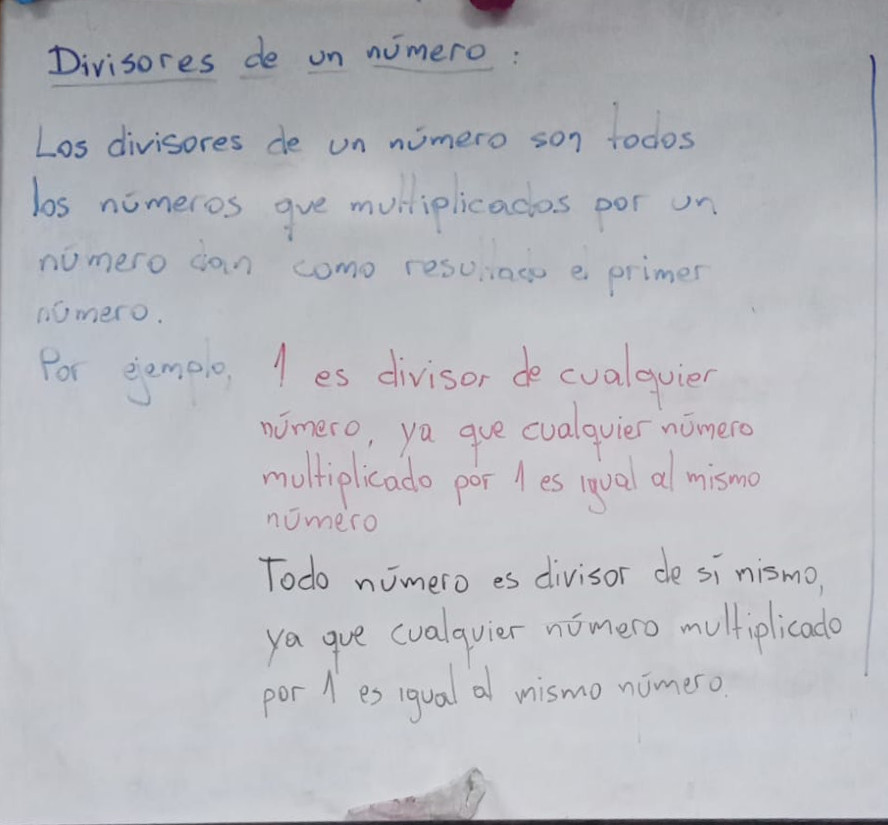 Divisores de un número:
Los divisores de un número son todos
los números que multiplicados por un
número dan como resultado el primer
número.
Por ejemplo, 1 es divisor de cualquier
número, ya que cualquier número
multiplicado por 1 es igual al mismo
número
Todo número es divisor de sí mismo,
ya que cualquier número multiplicado
por 1 es igual al mismo número.